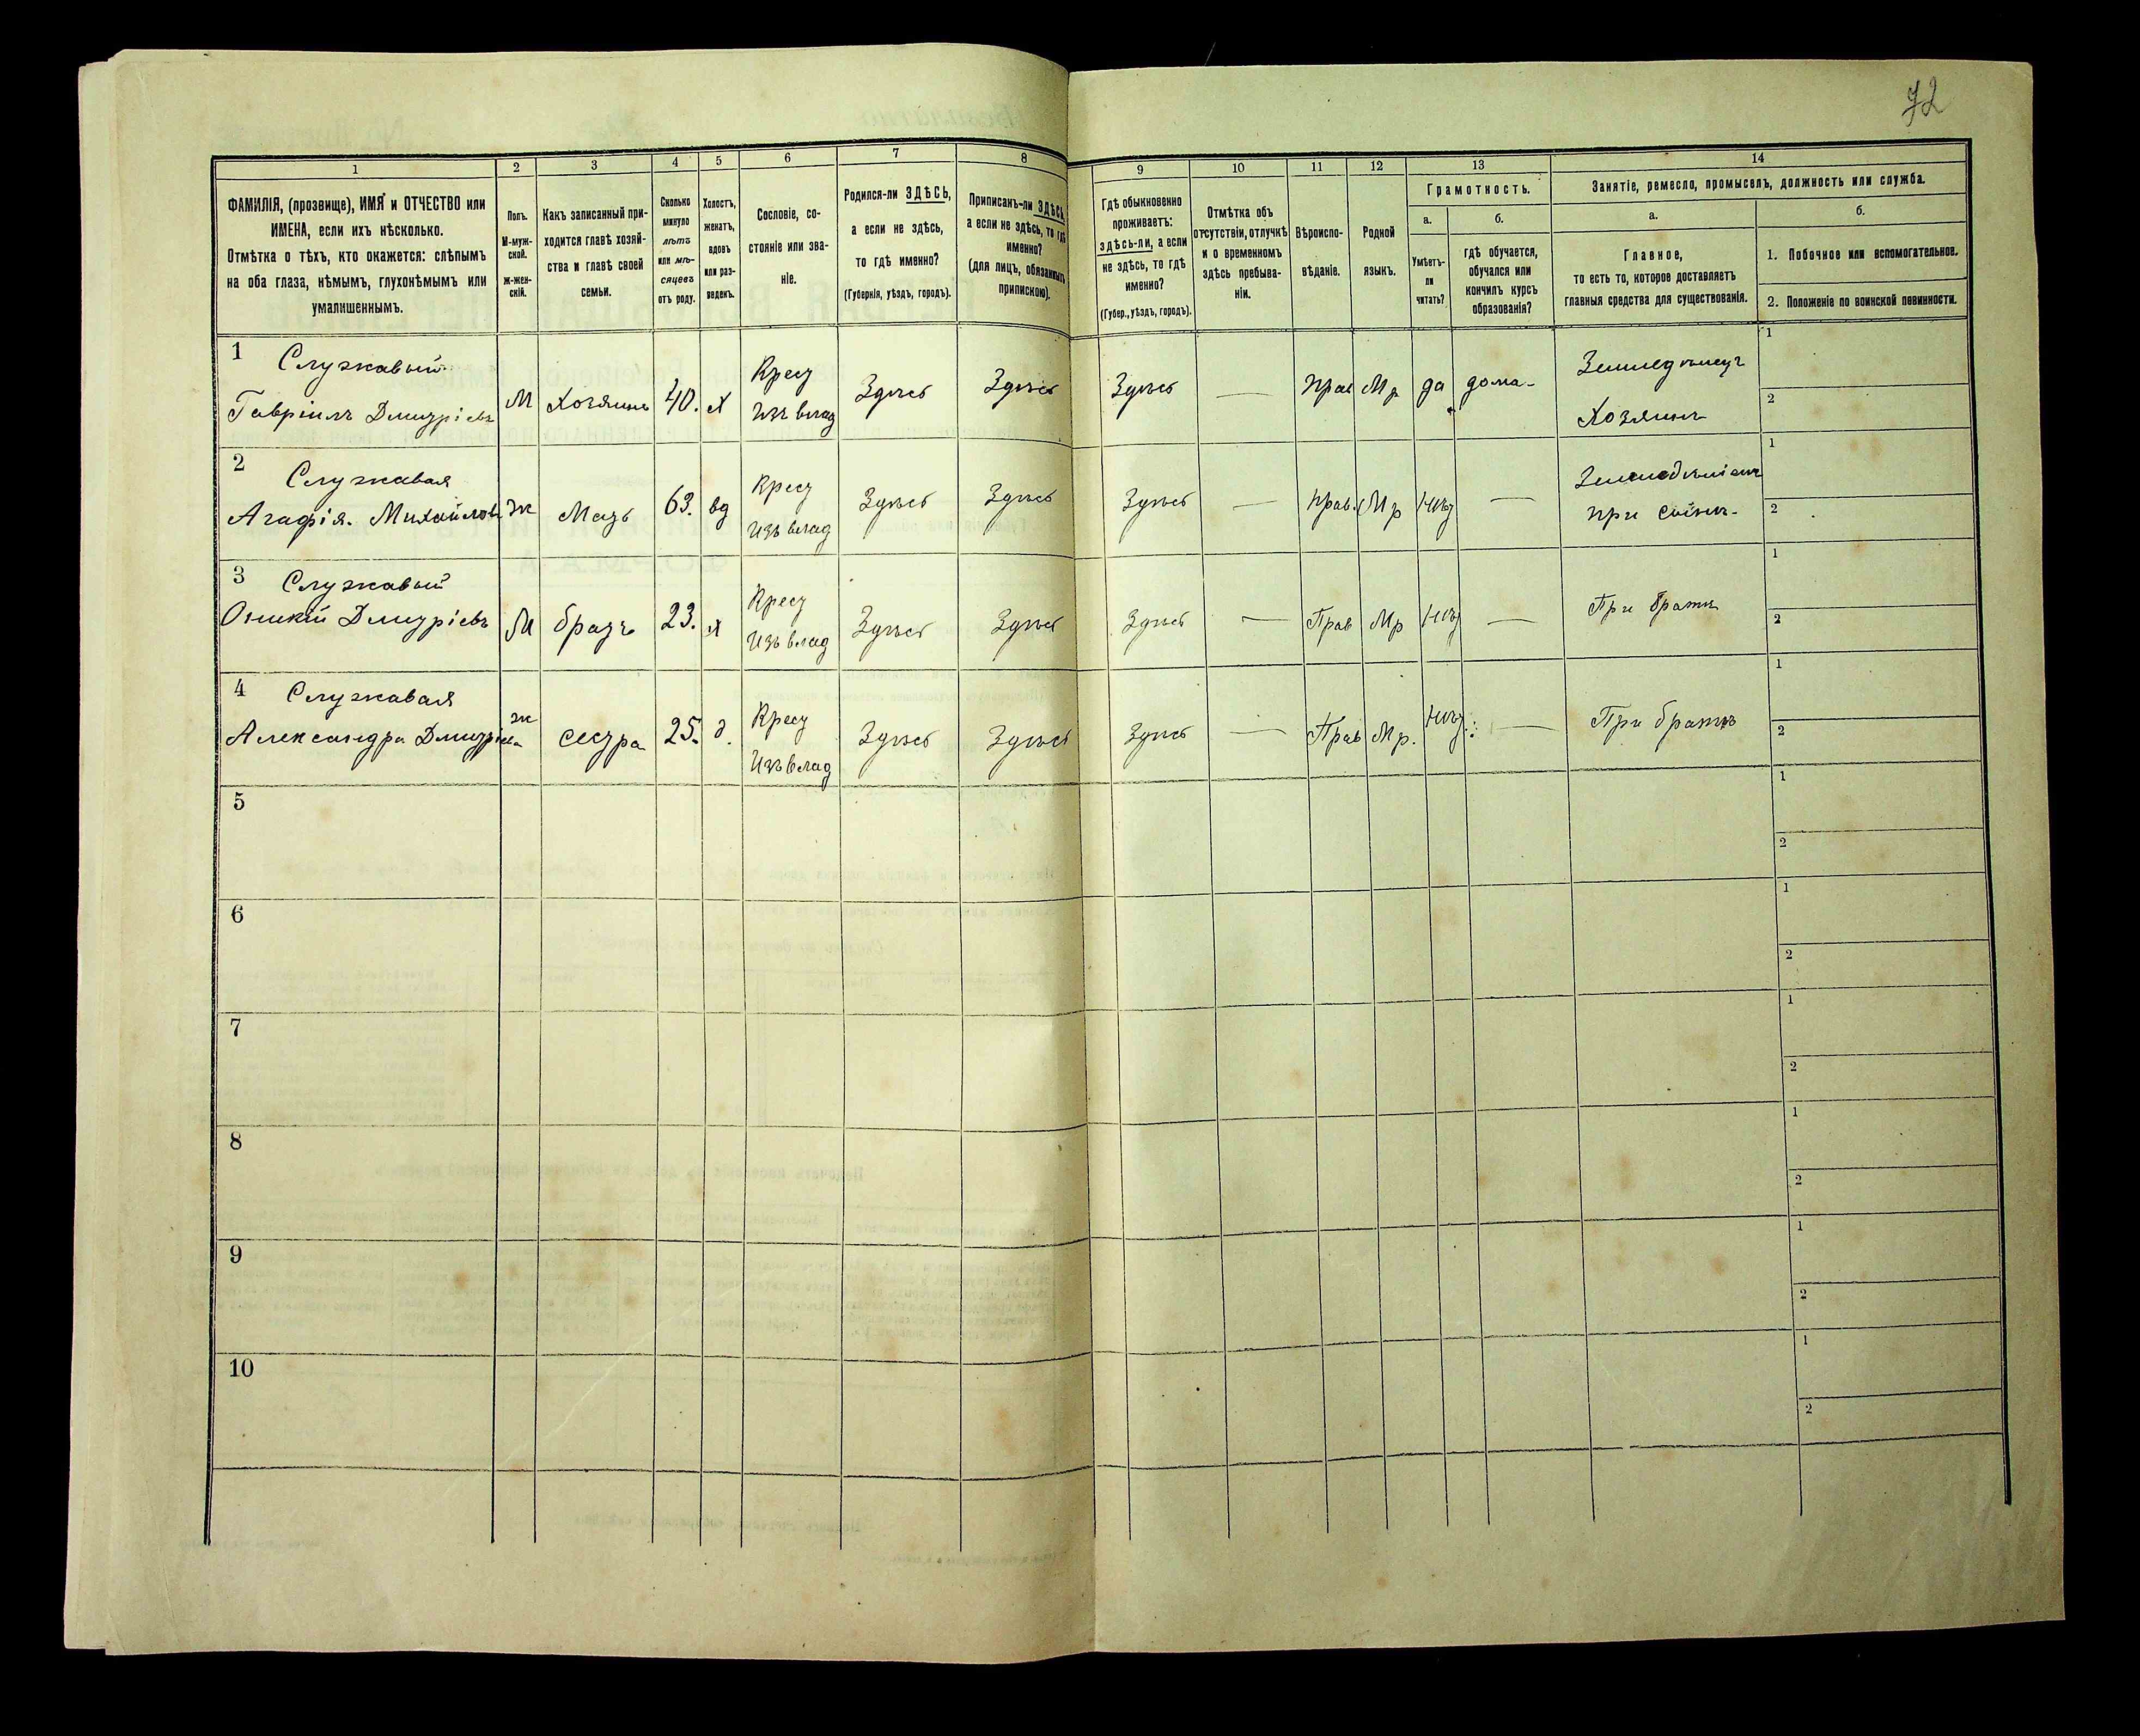 72
1
2
3
4
5
6
7
8
9
10
11
12
13
14
ФАМИЛІЯ, (прозвище), ИМЯ и ОТЧЕСТВО или
ИМЕНА, если ихъ нѣсколько.
Отмѣтка о тѣхъ, кто окажется: слѣпымъ
на оба глаза, нѣмымъ, глухонѣмымъ или
умалишеннымъ.
Полъ.
М-муж-
ской.
Ж-жен-
скій.
Какъ записанный при-
ходится главѣ хозяй-
ства и главѣ своей
семьи.
Сколько
минуло
лѣтъ
или мѣ-
сяцевъ
отъ роду.
Холостъ,
женатъ,
вдовъ
или раз-
веденъ.
Сословіе, со-
стояніе или зва-
ніе.
Родился-ли ЗДѢСЬ,
а если не здѣсь,
то гдѣ именно?
(Губернія, уѣздъ, городъ).
Приписанъ-ли ЗДѢСЬ,
а если не здѣсь, то гдѣ
именно?
(для лицъ, обязанныхъ
припискою).
Гдѣ обыкновенно
проживаетъ:
здѣсь-ли, а если
не здѣсь, то гдѣ
именно?
(Губер., уѣздъ, городъ).
Отмѣтка объ
отсутствіи, отлучкѣ
и о временномъ
здѣсь пребыва-
ніи.
Вѣроиспо-
вѣданіе.
Родной
языкъ.
Грамотность.
а.
Умѣетъ-
ли
читать?
б.
гдѣ обучается,
обучался или
кончилъ курсъ
образованія?
Занятіе, ремесло, промыселъ, должность или служба.
а.
Главное,
то есть то, которое доставляетъ
главныя средства для существованія.
б.
1. Побочное или вспомогательное.
2. Положеніе по воинской повинности.
1
Служавый
Гавріилъ Дмитріевъ
М
Хозяинъ
40.
Х
Крест
Изъ влад
Здѣсь
Здѣсь
Здѣсь
—
Прав
Мр
да
дома-
Земледѣлецъ
Хозяинъ
1
2
2
Служавая
Агафія. Михайлова
ж
Мать
63.
вд
Крест
Изъ влад
Здѣсь
Здѣсь
Здѣсь
—
Прав.
Мр
Нѣт
—
при сынѣ-
1
2
3
Служавый
Дмитріевъ
М
братъ
23.
Х
Крест
Изъ влад
Здѣсь
Здѣсь
Здѣсь
—
Прав
Мр
Нѣт
—
При братѣ
1
2
4
Служавая
Александра Дмитріева
ж
сестра
25.
д.
Крест
Изъ влад
Здѣсь
Здѣсь
Здѣсь
—
Прав
Мр.
Нѣт
—
При братѣ
1
2
5
1
2
6
1
2
7
1
2
8
1
2
9
1
2
10
1
2